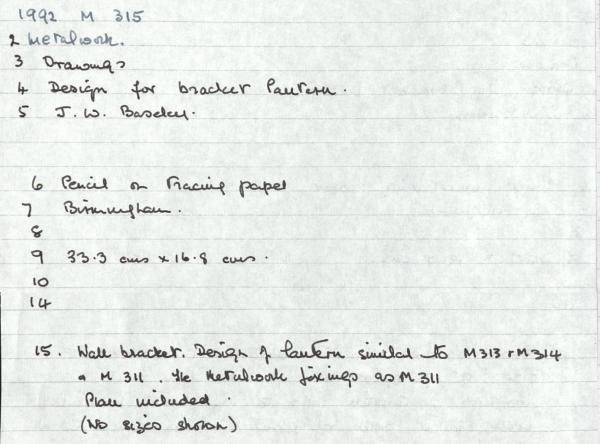 1992 M 315
2 Metalwork.
3 Drawings
4 Design for bracket lantern.
5 J. W. Baseley.
6 Pencil on Tracing paper
7 Birmingham.
8
9 33.3 cms x 16.8 cms.
10
14
15. Wall bracket. Design of lantern similar to M313 + M314
+ M 311. The metalwork fixings as M 311
Plan included.
(No sizes shown)